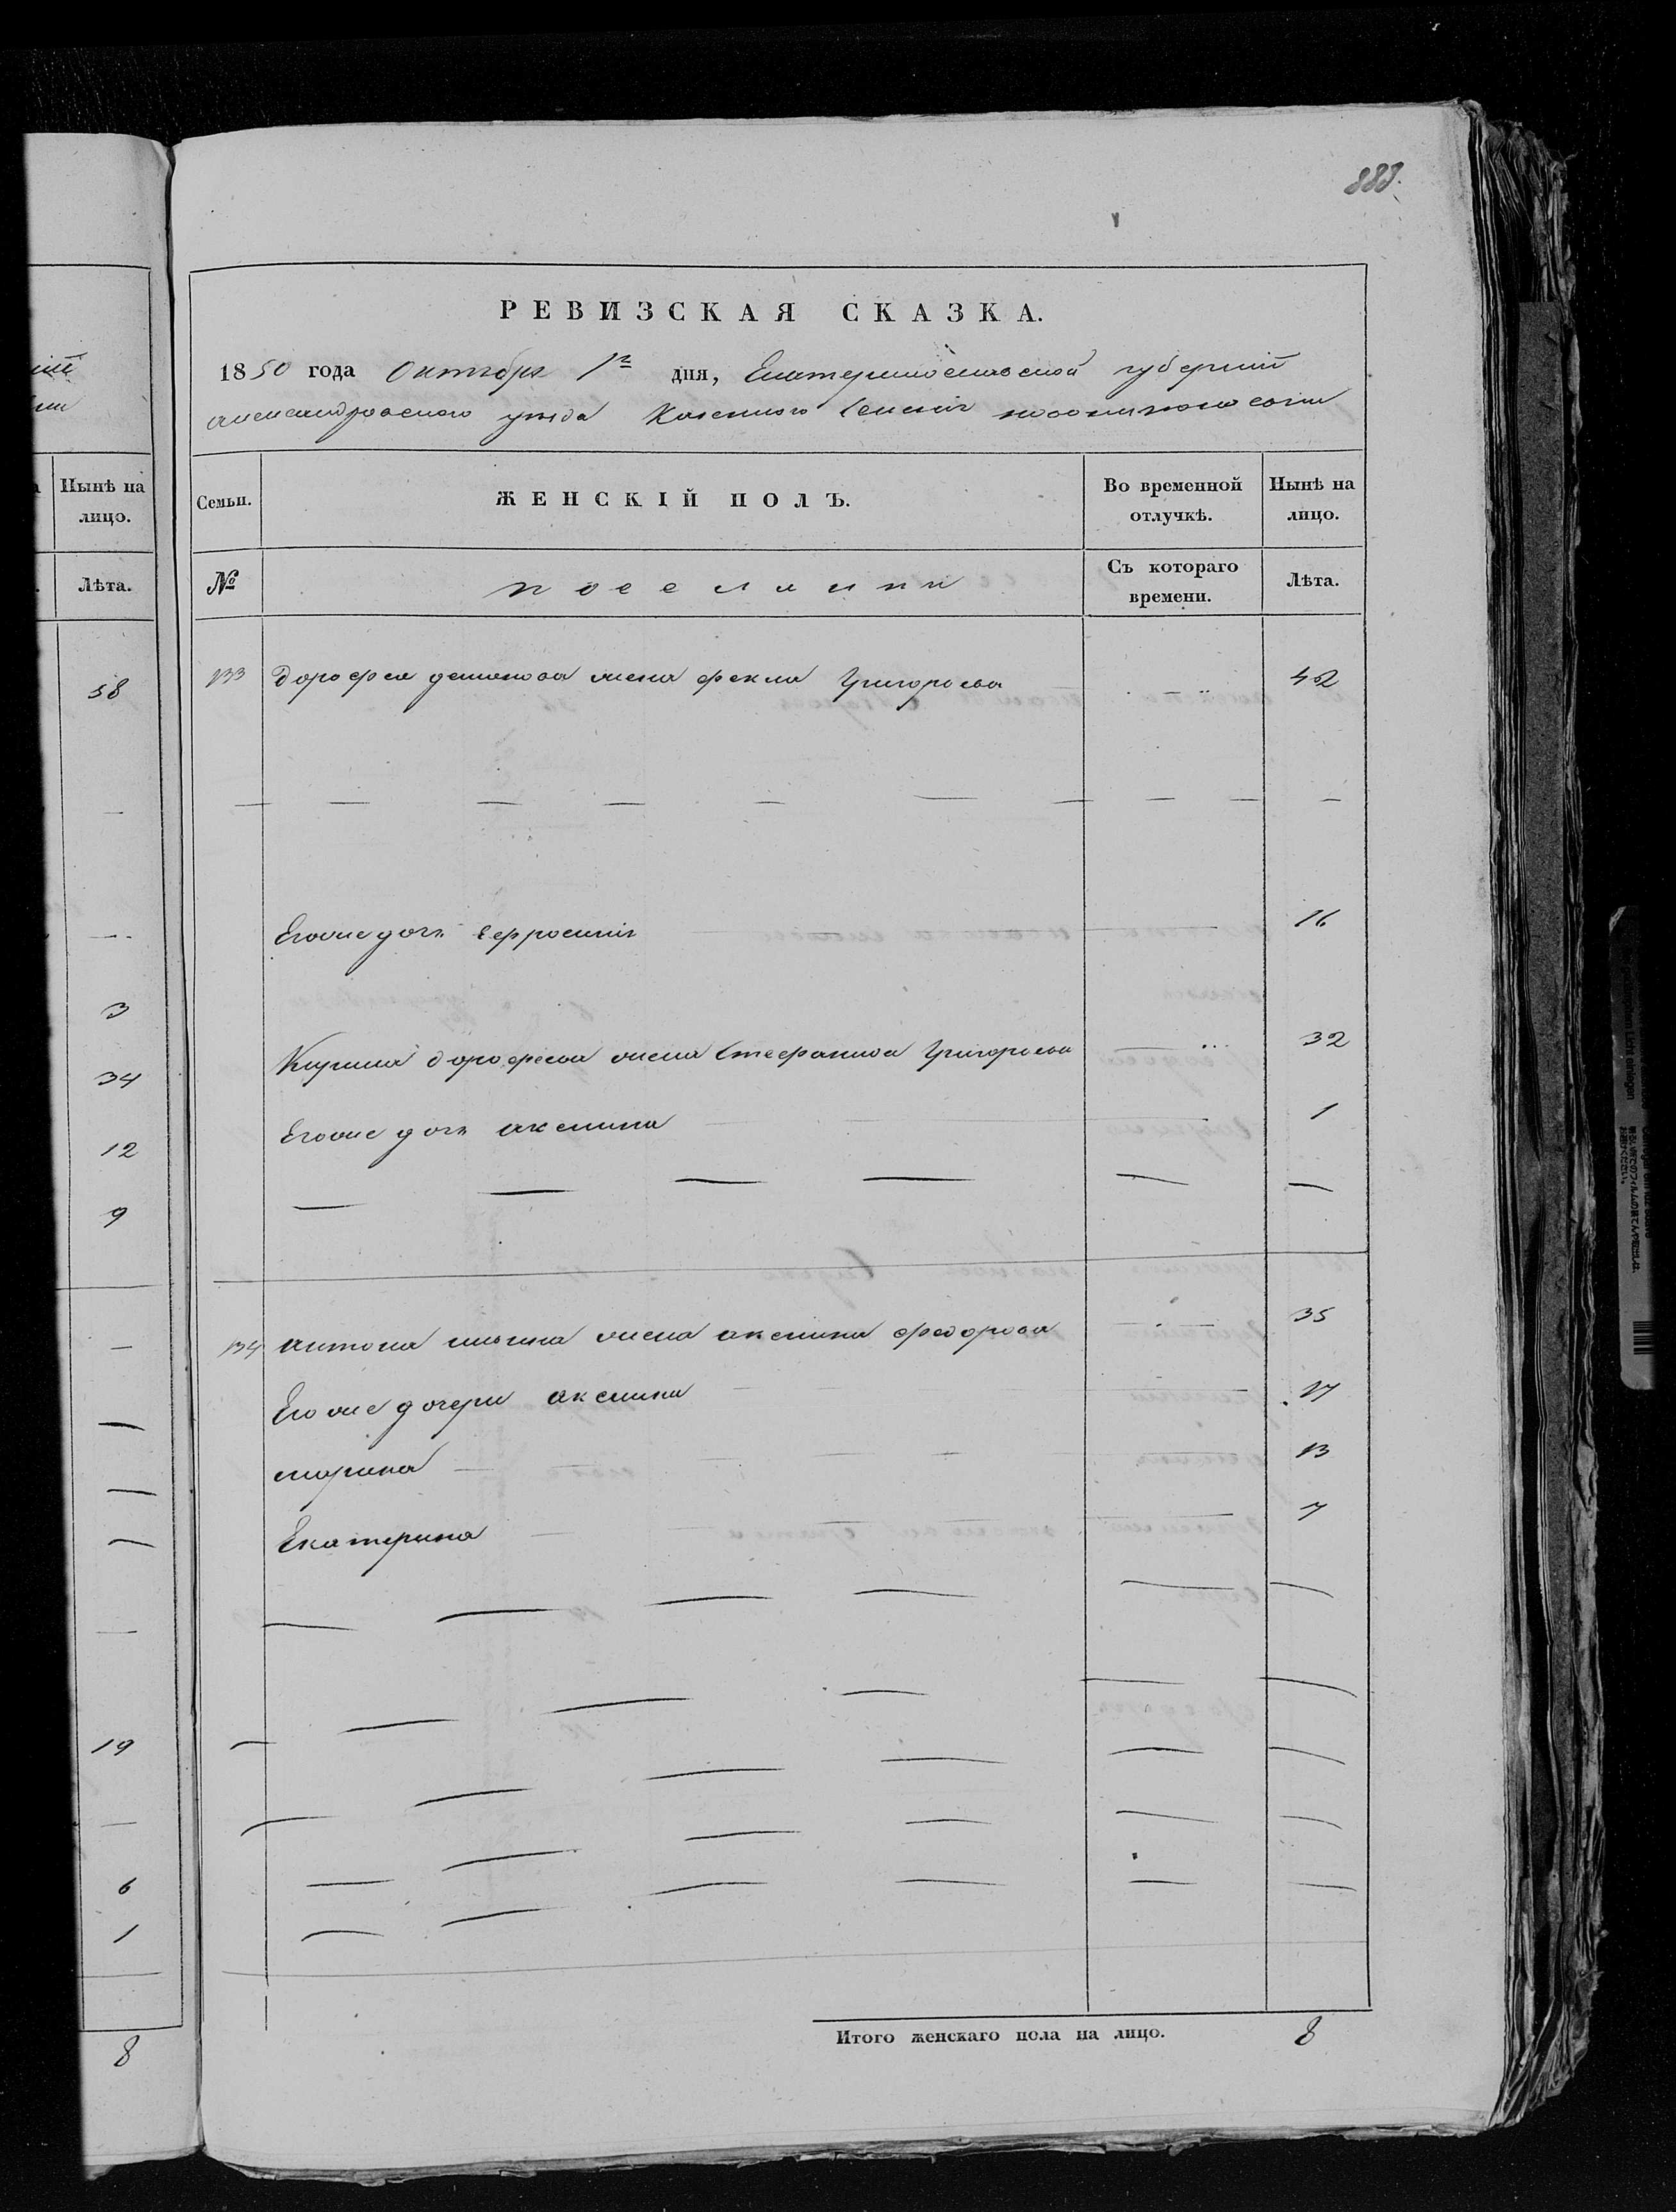 888.
РЕВИЗСКАЯ СКАЗКА.
1850 года Октября 1го дня, Екатеринославской губернии
александровского уезда Казенного Селения
Нынѣ на лицо.
Лѣта.
58
3
34
12
9
19
6
1
8
Семьи.
ЖЕНСКІЙ ПОЛЪ.
Во временной отлучкѣ.
Нынѣ на лицо.
№
поселянки
Съ котораго времени.
Лѣта.
133 Дорофея демянова жена фекла Григорьева 42
Еговже дочь Ефросиния 16
Кирила дорофеева жена Стефанида Григорьева 32
Еговже дочь аксиния 1
134 антона ильина жена аксиния федорова 35
Еговже дочери аксиния 17
марина 13
Екатерина 7
Итого женскаго пола на лицо. 8